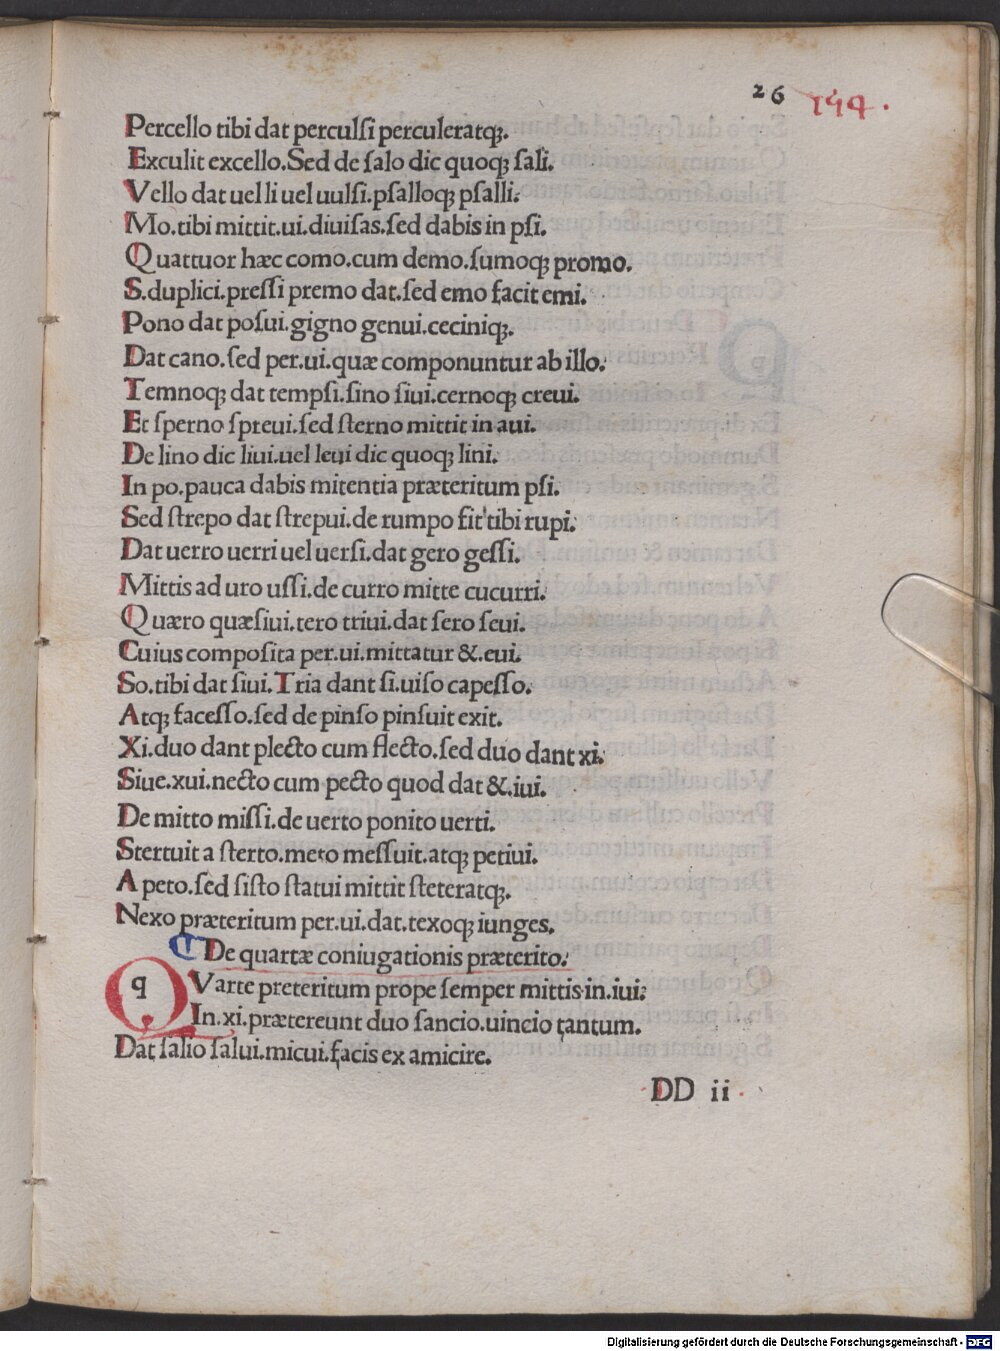 26 194.
Percello tibi dat perculsi perculeratqꝫ.
Exculit excello.Sed de salo dic quoqꝫ sali.
Vello dat uelli uel uulsi.psalloqꝫ psalli.
Mo.tibi mittit.ui.diuisas.sed dabis in psi.
Quattuor hæc como.cum demo.sumoqꝫ promo.
S.duplici.pressi premo dat.sed emo facit emi.
Pono dat posui.gigno genui.ceciniqꝫ.
Dat cano.sed per.ui.quæ componuntur ab illo:
Temnoqꝫ dat tempsi.sino siui.cernoqꝫ creui.
Et sperno spreui.sed sterno mittit in aui.
De lino dic liui.uel leui dic quoqꝫ lini.
In po.pauca dabis mitentia præteritum psi.
Sed strepo dat strepui.de rumpo fit tibi rupi.
Dat uerro uerri uel uersi.dat gero gessi.
Mittis ad uro ussi.de curro mitte cucurri.
Quæro quæsiui.tero triui.dat sero seui.
Cuius composita per.ui.mittatur &.eui.
So.tibi dat siui.Tria dant si.uiso capesso.
Atqꝫ facesso.sed de pinso pinsuit exit.
Xi.duo dant plecto cum flecto.sed duo dant xi.
Siue.xui.necto cum pecto quod dat &.iui.
De mitto missi.de uerto ponito uerti.
Stertuit a sterto.meto messuit.atqꝫ petiui.
A peto.sed sisto statui mittit steteratqꝫ.
Nexo præteritum per.ui.dat.texoqꝫ iunges.
De quartæ coniugationis præterito:
qVarte preteritum prope semper mittis.in.iui:
In.xi.prætereunt duo sancio.uincio tantum.
Dat salio salui.micui.facis ex amicire.
DD ii
Digitalisierung gefördert durch die Deutsche Forschungsgemeinschaft - DFG